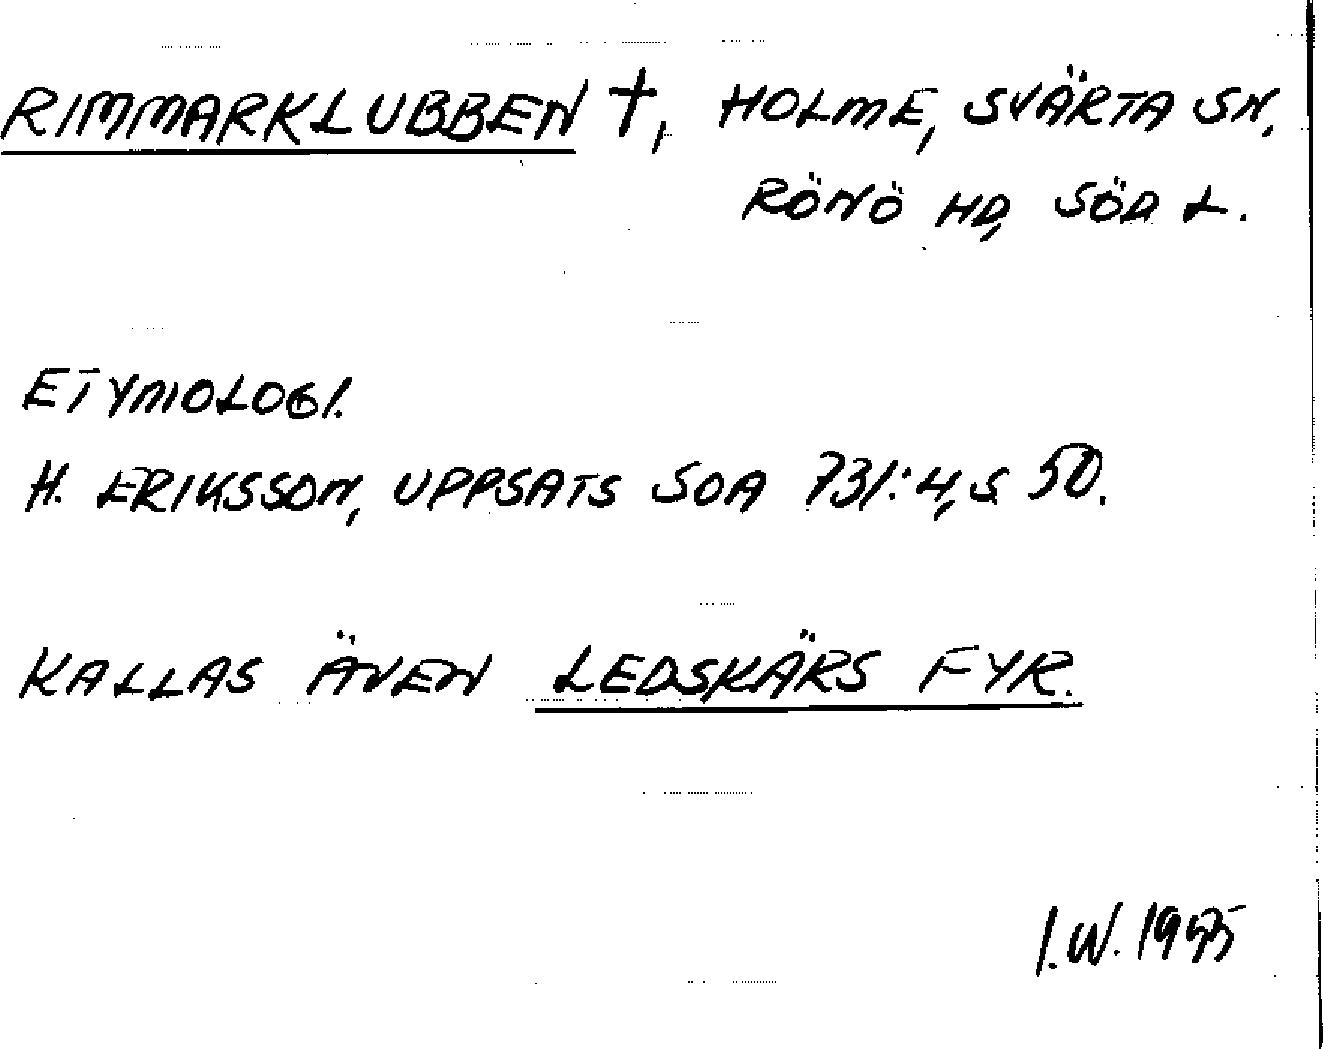 RIMMARKLUBBEN †, HOLME, SVÄRTA SN,
RÖNÖ HD, SÖD L.
ETYMOLOGI.
H. ERIKSSON, UPPSATS SOA 731:4, S 50.
KALLAS ÄVEN LEDSKÄRS FYR.
I.W. 1955